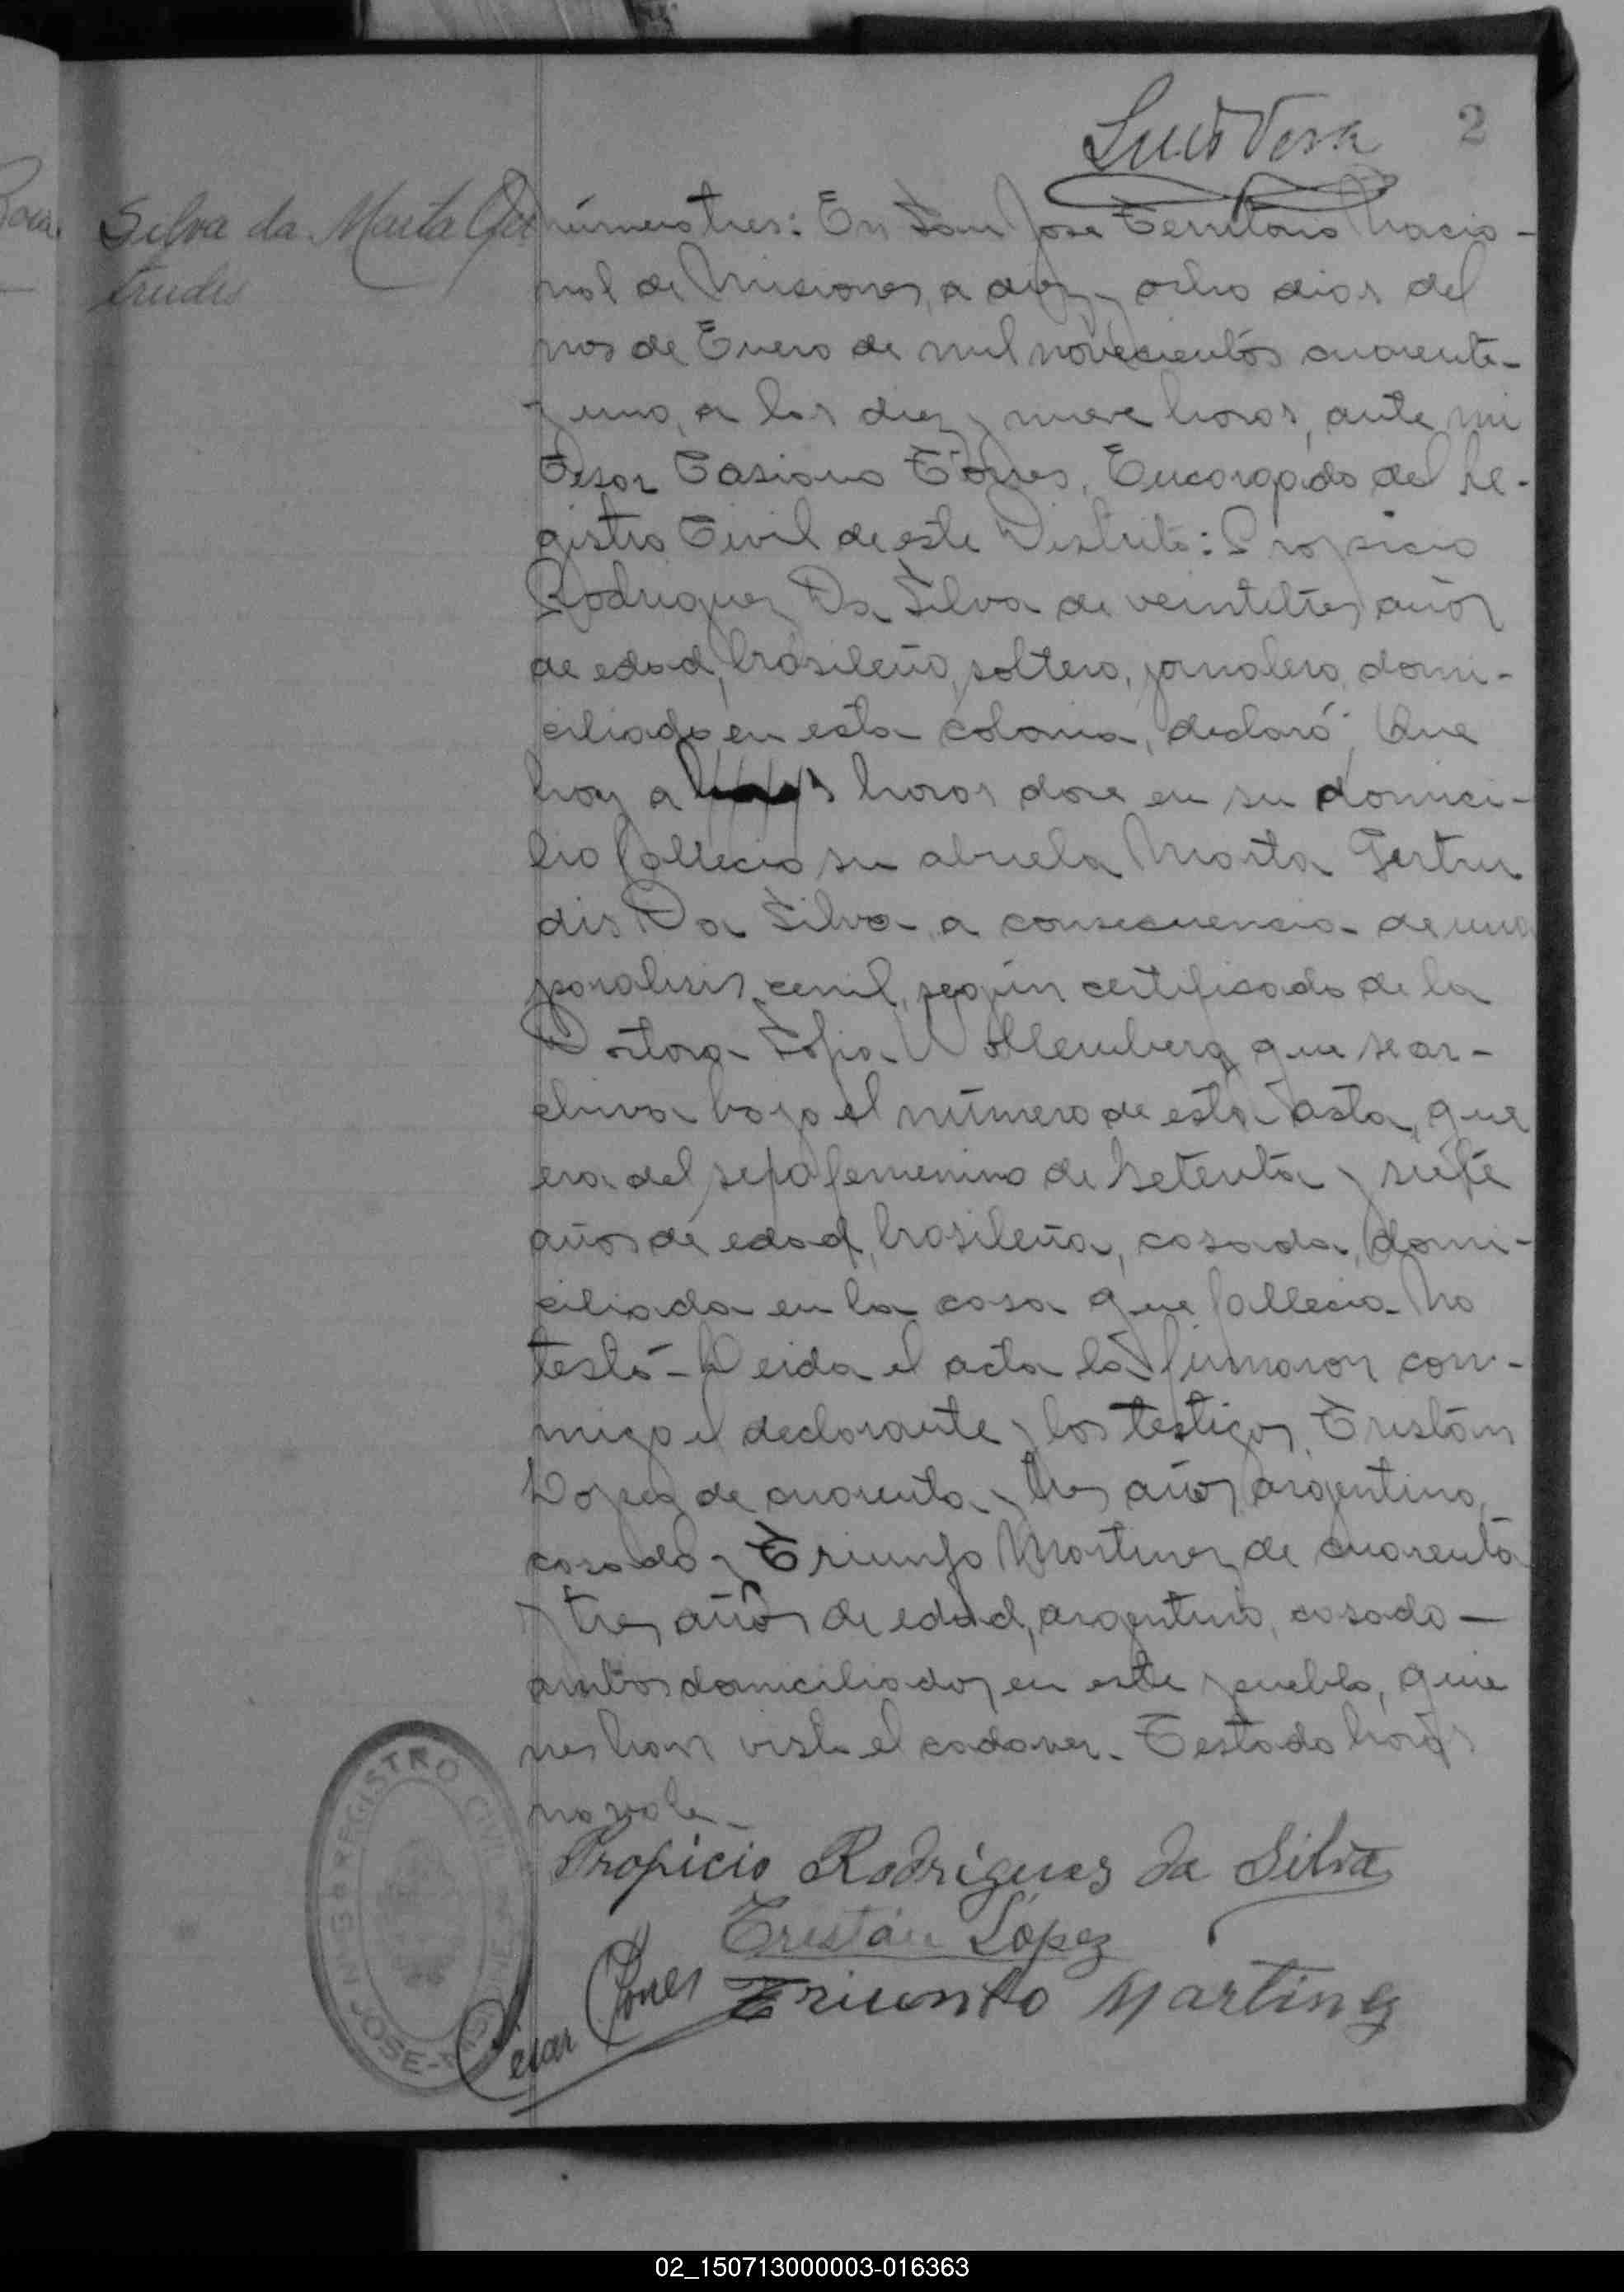 2
Silva da Marta Ger
trudis
número tres: En San José Territorio Nacio-
nal de Misiones, a diez y ocho dias del
mes de Enero de mil novecientos cuarenta-
y uno, a las diez y nueve horas, ante mi
Cesar Casiano Torres, Encargado del Re-
gistro Civil de este Distrito: Propicio
Rodriguez Da Silva de veintitres años
de edad, brasileño, soltero, jornalero, domi-
ciliado en esta colonia, declaró: Que
hoy a horas doce en su domici-
lio fallecio su abuela Marta Gertru
dis Da Silva, a consecuencia de una
paralisis cenil, según certificado de la
Doctora Sofia Wollemberg que se ar-
chiva bajo el número de esta acta, que
era del sexo femenino de setenta y siete
años de edad, brasileña, casada, domi-
ciliada en la casa que fallecio. No
testó - Leida el acta la firmaron con-
migo el declarante y los testigos, Tristán
Lopez de cuarenta y tres años, argentino,
casado y Triunfo Martinez de cuarenta
y tres años de edad, argentino, casado -
ambos domiciliados en este pueblo, quie
nes han visto el cadaver. Testado horas
no vale -
Propicio Rodrigues da Silva
Tristán López
Triunfo Martinez
REGISTRO CIVIL
SAN JOSE